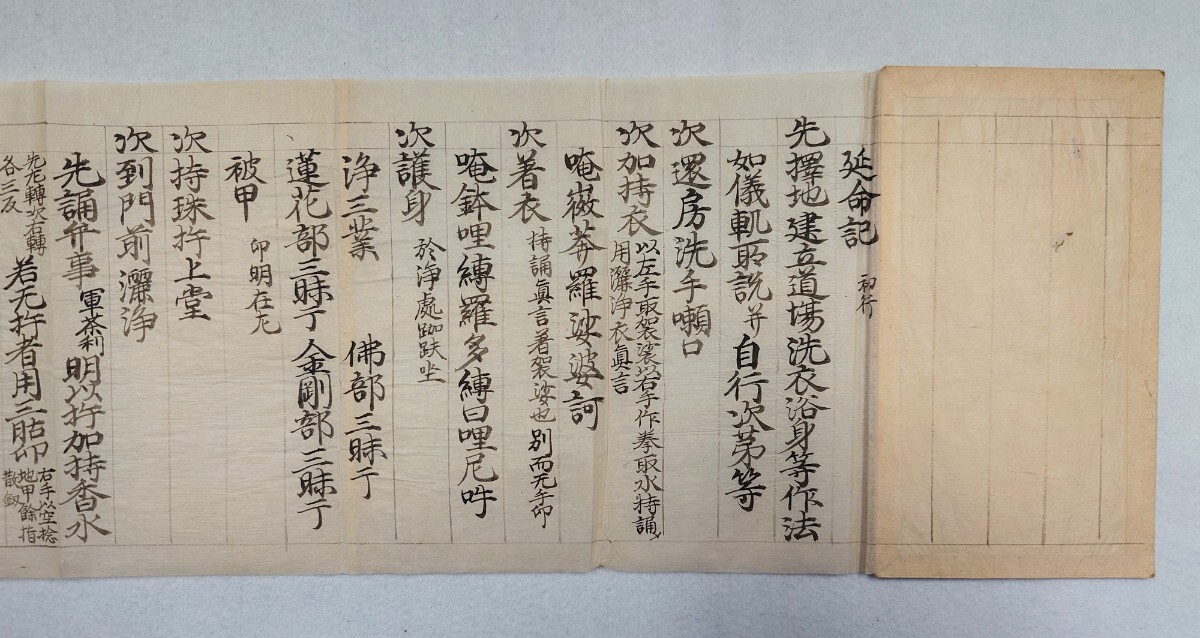 延命記 初行
先擇地建立道場洗衣浴身等作法
如儀軌所説并自行次第等
次還房洗手嗽口
次加持衣 以左手取袈裟以右手作拳取水持誦
用灑浄衣真言
唵薇莽羅娑婆訶
次著衣 持誦眞言著袈裟也別而无手印
唵鉢哩縛羅多縛日哩尼吽
次護身 於浄處跏趺坐
浄三業 佛部三昧丁
蓮花部三昧丁金剛部三昧丁
被甲 印明在左
次持珠杵上堂
次到門前灑浄
先誦弁事軍荼利明以杵加持香水
先左轉次右轉
各三反
若无杵者用三股印 右手以空捻
地甲餘指
散釼